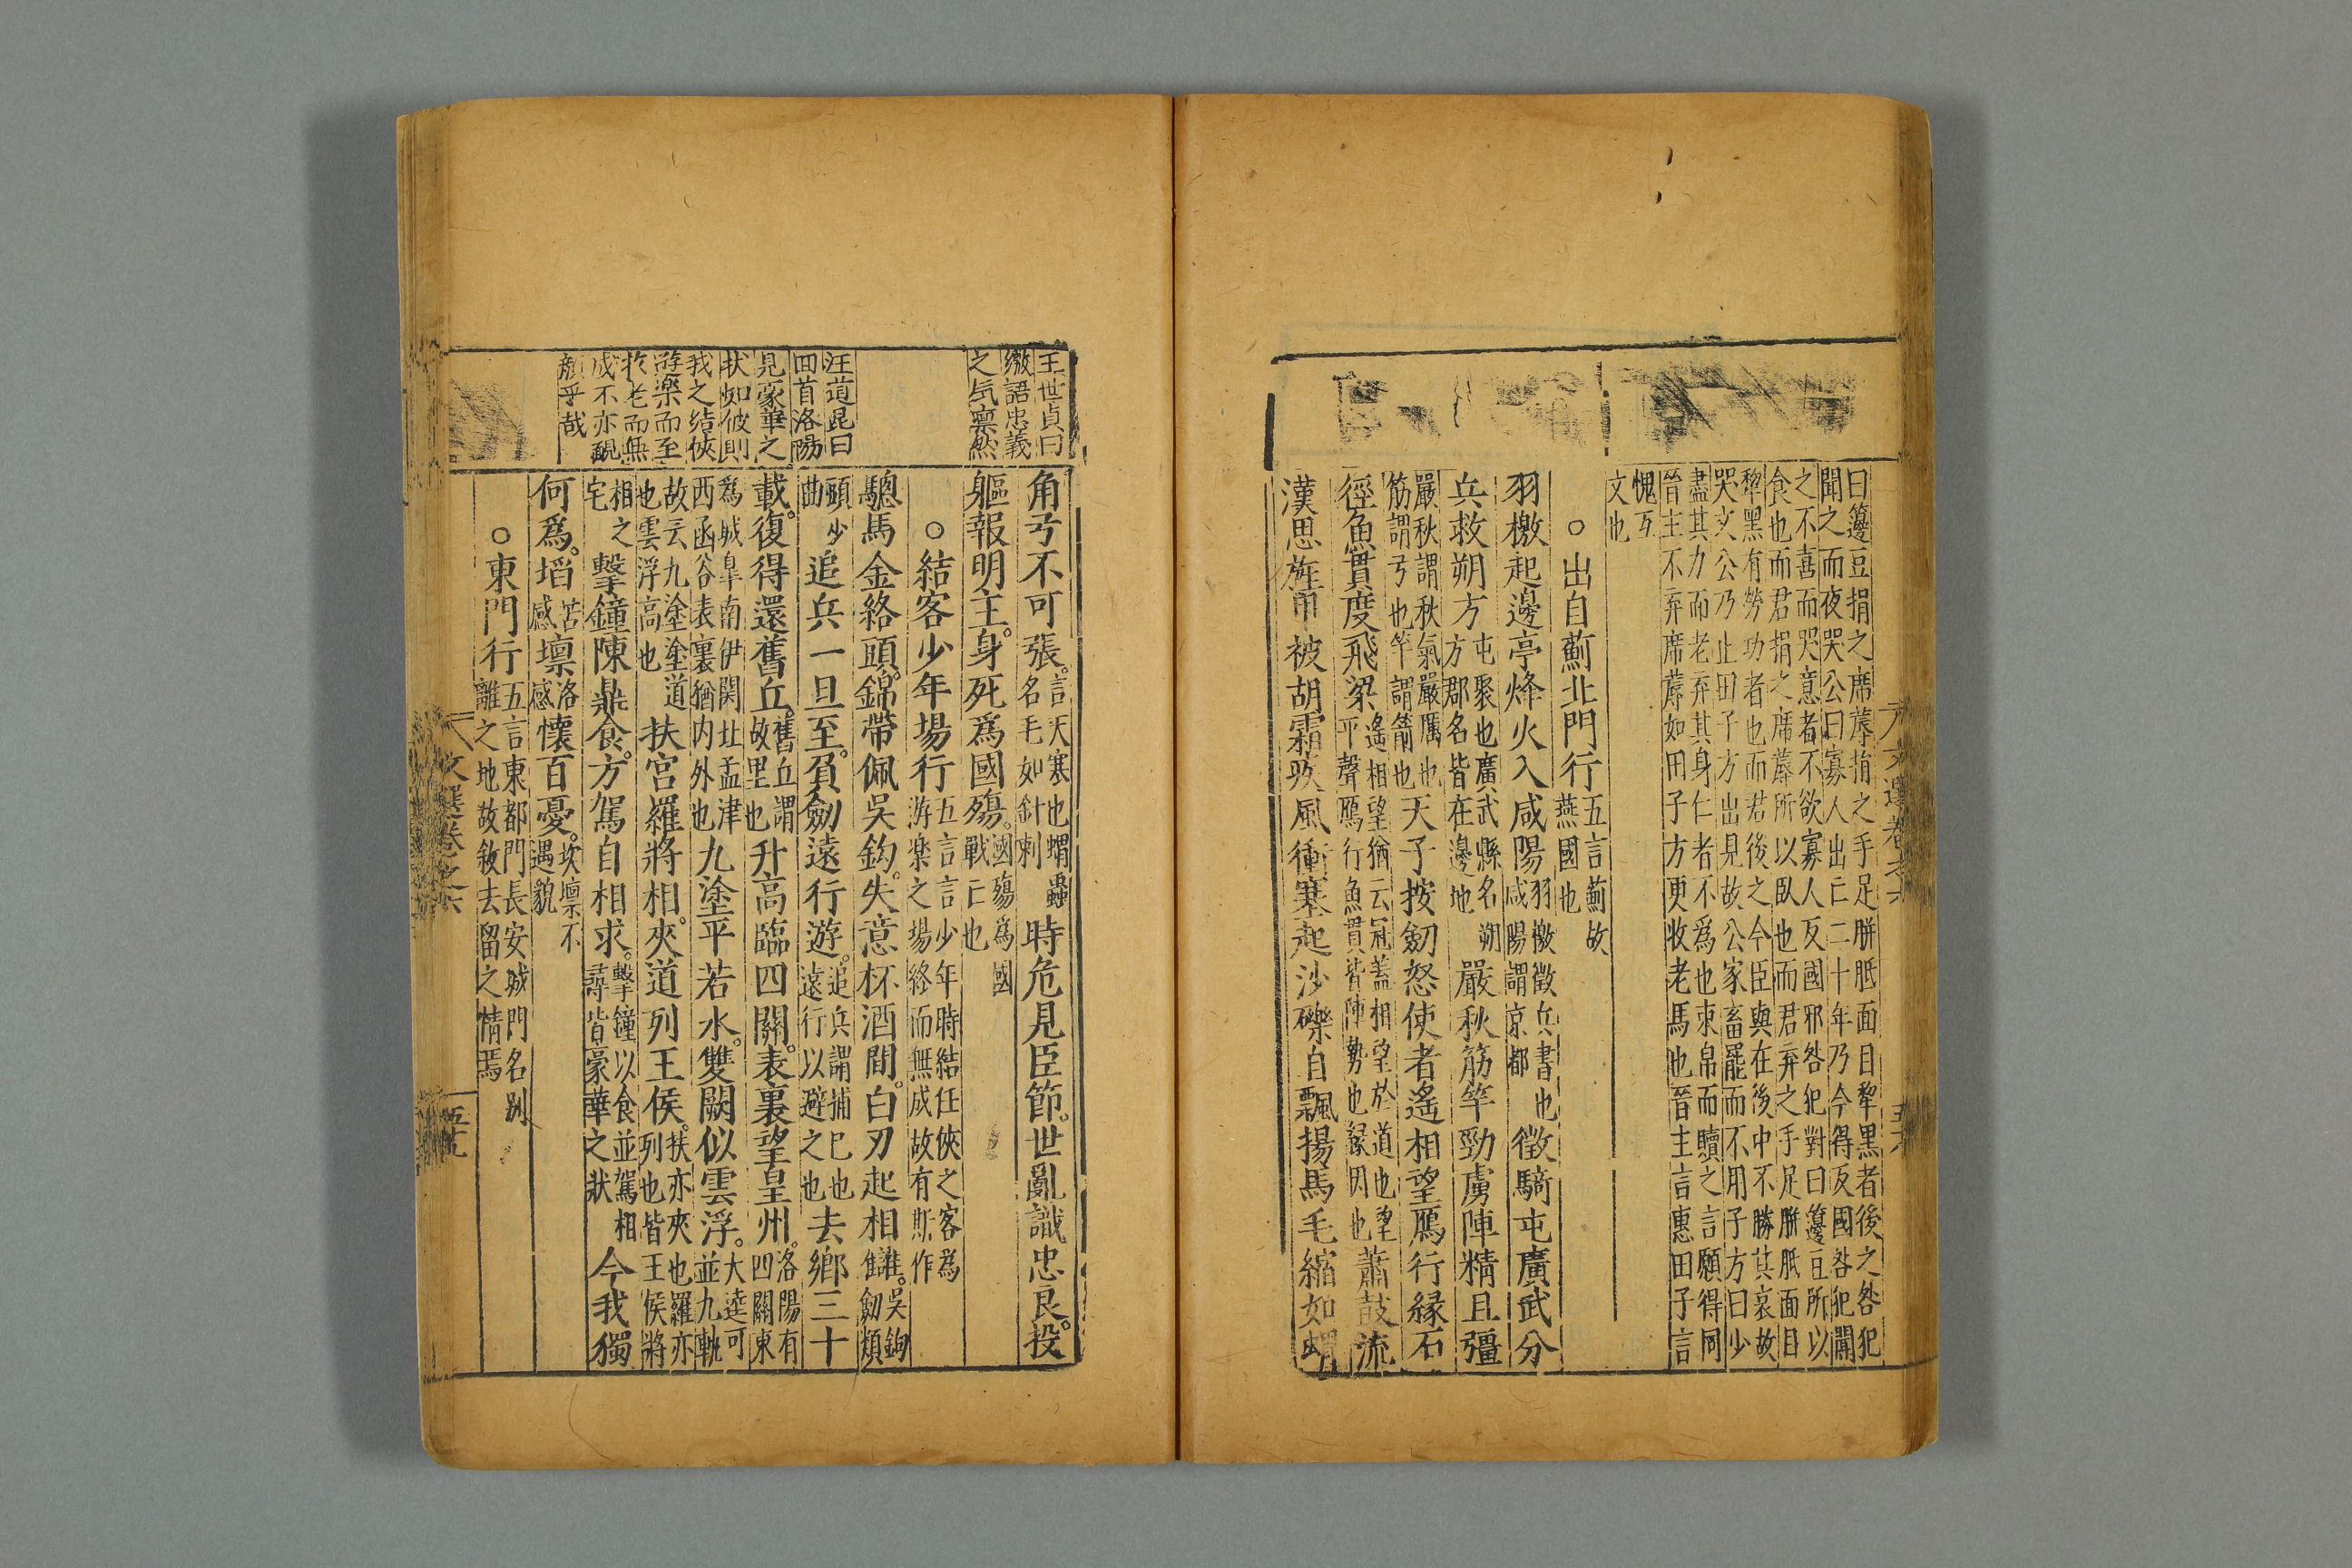 曰籩豆捐之席蓐捐之手足胼胝面目犂黑者後之咎犯
聞之而夜哭公曰寡人出亡二十年乃今得反國咎犯聞
之不喜而哭意者不欲寡人反國邪咎犯對曰籩豆所以
食也而君捐之席蓐所以臥也而君弃之手足胼胝面目
犂黑有勞功者也而君後之今臣與在後中不勝其哀故
哭文公乃止田子方出見故公家畜罷而不用子方曰少
盡其力而老弃其身仁者不爲也束帛而贖之言願得同
晉主不弃席蓐如田子方更收老馬也晉主言惠田子言
愧互
文也
○出自薊北門行
五言薊故
燕國也
羽檄起邊亭烽火入咸陽
羽檄徵兵書也
咸陽謂京都
徵騎屯廣武分
兵救朔方
屯聚也廣武縣名朔
方郡名皆在邊地
嚴秋筋竿勁虜陣精且彊
嚴秋謂秋氣嚴厲也
筋謂弓也竿謂箭也
天子按劒怒使者遙相望鴈行緣石
徑魚貫度飛梁
遙相望猶云冠蓋相望於道也望
平聲鴈行魚貫皆陣勢也緣因也
蕭鼓流
漢思旌甲被胡霜疾風衝塞起沙礫自飄揚馬毛縮如蝟
文選卷之六
五六
王世貞曰
繳語忠義
之氣凛然
角弓不可張。
言天寒也蝟蟲
名毛如針刺
時危見臣節。世亂識忠良。投
軀報明主。身死爲國殤。
國殤爲國
戰亡也
○結客少年場行
五言言少年時結任俠之客爲
游樂之場終而無成故有斯作
驄馬金絡頭。錦帶佩吳鈎。失意杯酒間。白刃起相讎。
吳鉤
劒類
頭少
曲
追兵一旦至。負劒遠行遊。
追兵謂捕已也
遠行以避之也
去鄉三十
載。復得還舊丘。
舊丘謂
故里也
升高臨四關。表裏望皇州。
洛陽有
四關東
爲城皐南伊闕北孟津
西函谷表裏猶内外也
九塗平若水。雙闕似雲浮。
大逵可
並九軌
故云九塗塗道
也雲浮高也
扶宮羅將相。夾道列王侯。
扶亦夾也羅亦
列也皆王侯將
相之
宅
擊鐘陳鼎食。方駕自相求。
擊鐘以食並駕相
尋皆豪華之狀
今我獨
何爲。埳
苦
感
壈
洛
感
懷百憂。
坎壈不
遇貌
○東門行
五言東都門長安城門名別
離之地故敘去留之情焉
汪道昆曰
回首洛陽
見豪華之
狀如彼則
我之結俠
游樂而至
於老而無
成不亦靦
顏乎哉
文選卷之六